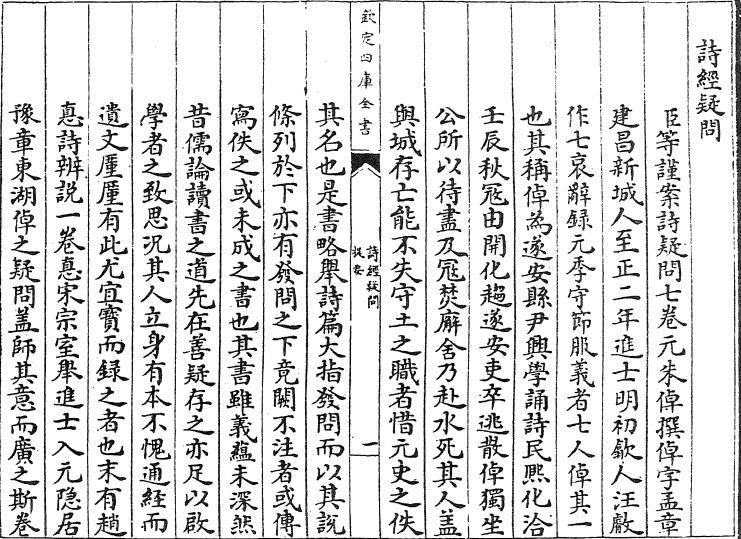 詩經疑問
臣等謹案詩疑問七卷元朱倬撰倬字孟章
建昌新城人至正二年進士明初歙人汪叡
作七哀辭錄元季守節服義者七人倬其一
也其稱倬為遂安縣尹興學誦詩民熙化洽
壬辰秋冦由開化趨遂安吏卒逃散倬獨坐
公所以待盡及冦焚廨舍乃赴水死其人葢
與城存亡能不失守土之職者惜元史之佚
欽定四庫全書
詩經疑問
提要
一
其名也是書略舉詩篇大指發問而以其說
條列於下亦有發問之下竟闕不注者或傳
寫佚之或未成之書也其書雖義蘊未深然
昔儒論讀書之道先在善疑存之亦足以啟
學者之致思況其人立身有本不愧通經而
遺文厪厪有此尤宜寶而録之者也末有趙
悳詩辨説一卷悳宋宗室舉進士入元隐居
豫章東湖倬之疑問葢師其意而廣之斯卷